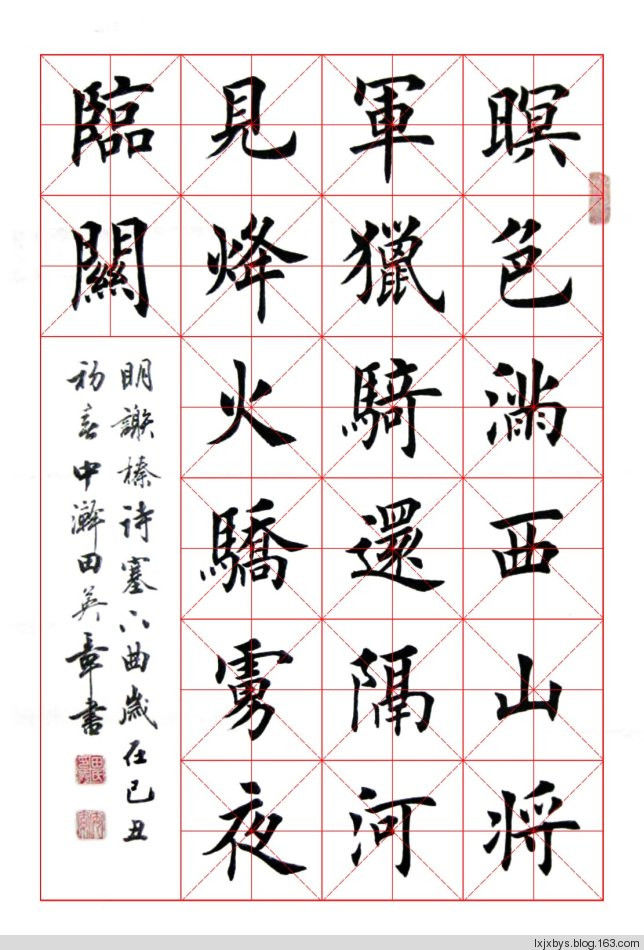 暝色滿西山将
軍獵騎還隔河
見烽火驕虜夜
臨關
明謝榛诗塞下曲歲在己丑
初春中澣田英章書
lxjxbys.blog.163.com